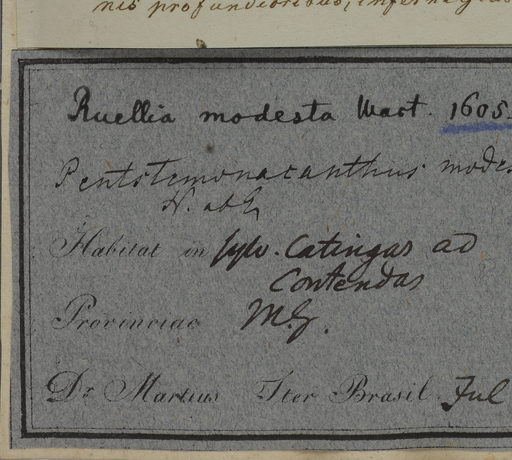 nis profundioribus, inferne glab
Ruellia modesta Mart. 1605.
Pentstemonacanthus modes
N. ab E
Habitat in sylv. Catingas ad
Contendas
Provinciae M.G.
Dr. Martius Iter Brasil. Jul